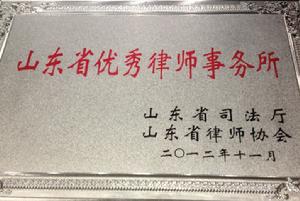 山东省优秀律师事务所
山东省司法厅
山东省律师协会
二〇一二年十一月